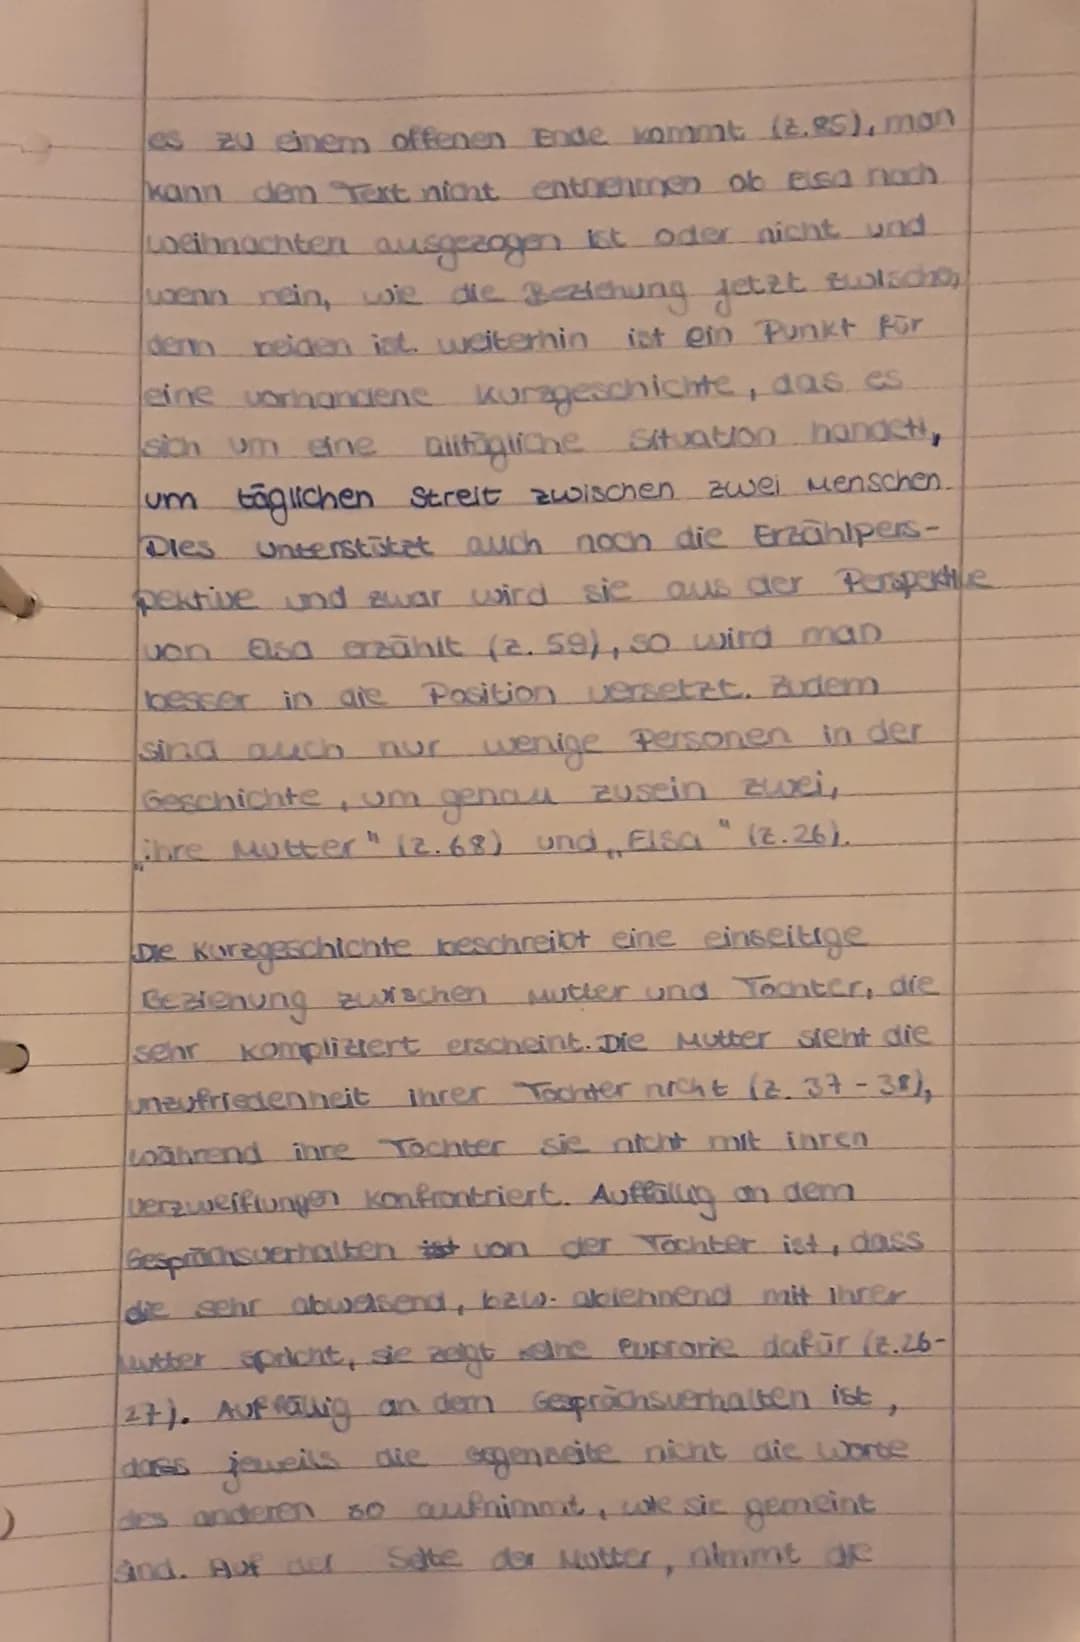 es zu einem offenen Ende kommt (Z.85), man
kann dem Text nicht entnehmen ob Elsa nach
Weihnachten ausgezogen ist oder nicht und
wenn nein, wie die Beziehung jetzt zwischen
denn beiden ist. weiterhin ist ein Punkt für
eine vorhandene Kurzgeschichte, das es
sich um eine alltägliche Situation handelt,
um täglichen Streit zwischen zwei Menschen.
Dies unterstützt auch noch die Erzählpers-
pektive und zwar wird sie aus der Perspektive
von Elsa erzählt (Z. 59), so wird man
besser in die Position versetzt. Zudem
sind auch nur wenige Personen in der
Geschichte, um genau zusein zwei,
„ihre Mutter" (Z.68) und „Elsa" (Z.26).
Die Kurzgeschichte beschreibt eine einseitige
Beziehung zwischen Mutter und Tochter, die
sehr kompliziert erscheint. Die Mutter sieht die
unzufriedenheit ihrer Tochter nicht (Z. 37-38),
während ihre Tochter sie nicht mit ihren
verzweiflungen konfrontriert. Auffällig an dem
Gesprächsverhalten ist von der Tochter ist, dass
die sehr abweisend, bzw. ablehnend mit ihrer
Mutter spricht, sie zeigt keine Euphorie dafür (Z.26-
27). Auffällig an dem Gesprächsverhalten ist,
dass jeweils die gegenseite nicht die Worte
des anderen so aufnimmt, wie sie gemeint
sind. Auf der Seite der Mutter, nimmt die